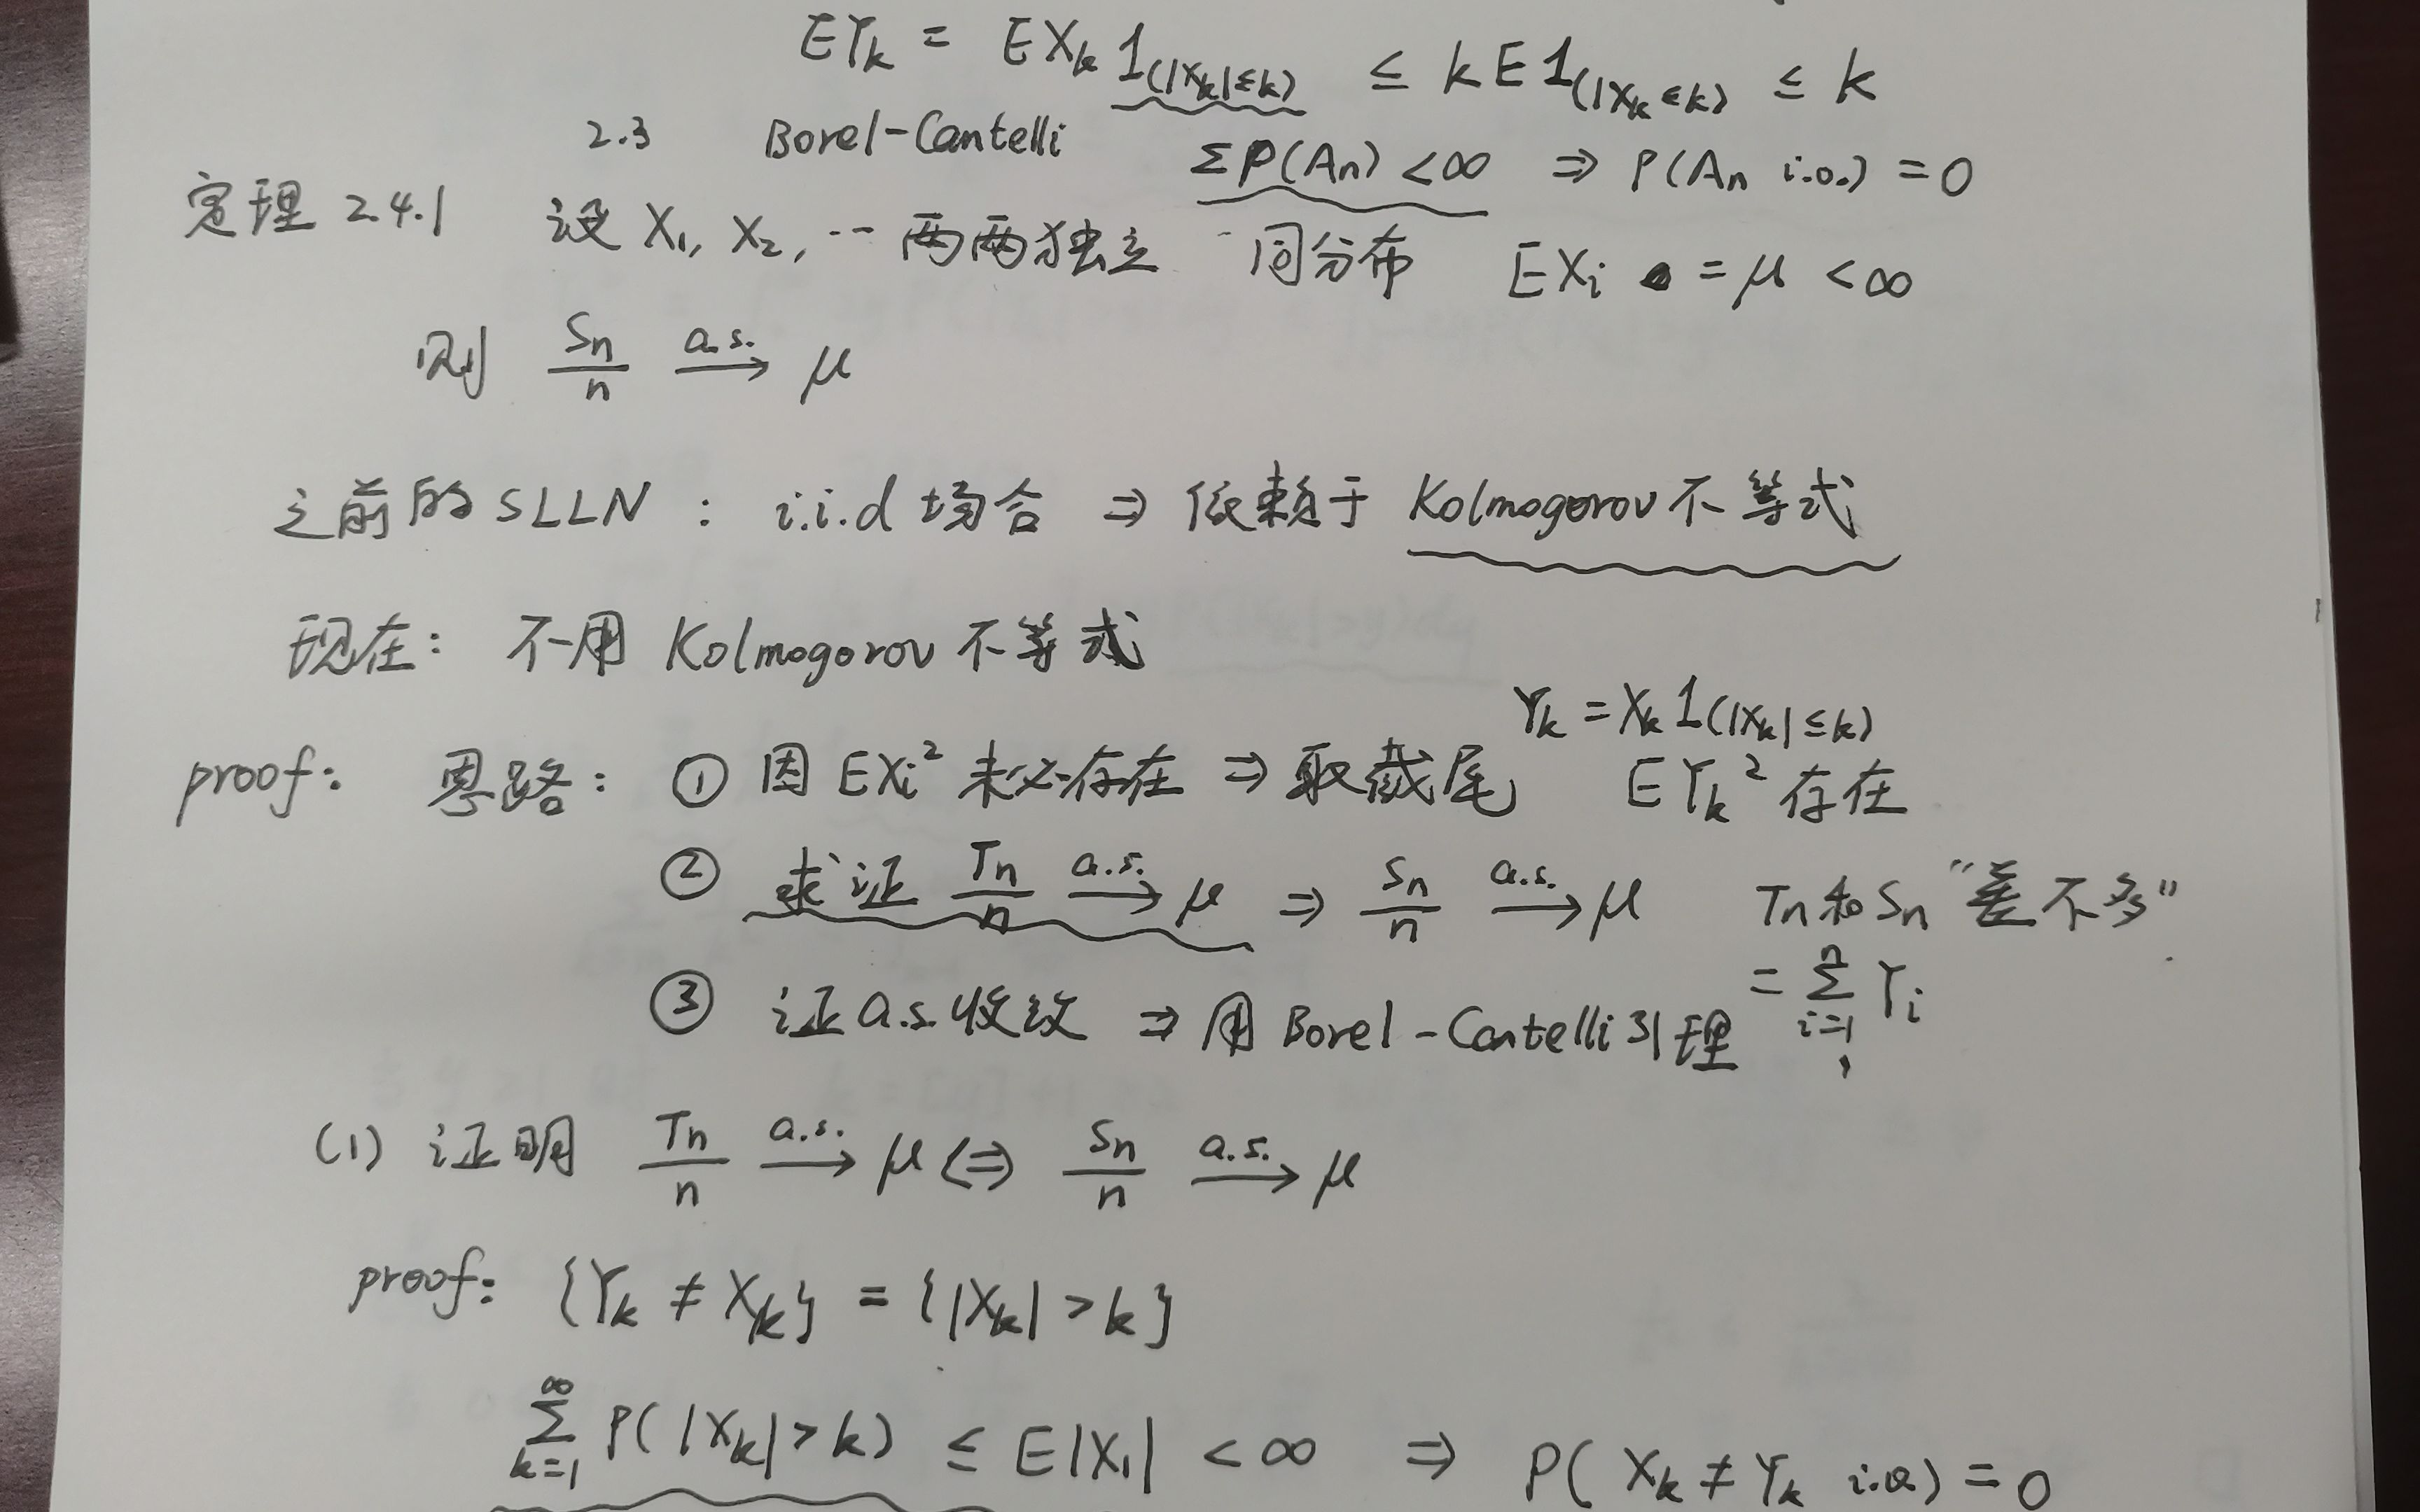 EY_k = EX_k 1_(|X_k|≤k) ≤ k E 1_(|X_k ≤k) ≤ k
2.3 Borel-Cantelli ΣP(A_n) <∞ ⇒ P(A_n i.o.) = 0
定理 2.4.1 设 X_1, X_2, … 两两独立 同分布 EX_i = μ <∞
则 S_n/n —a.s.→ μ
之前的 SLLN : i.i.d 场合 ⇒ 依赖于 Kolmogorov 不等式
现在: 不用 Kolmogorov 不等式
Y_k = X_k 1_(|X_k|≤k)
proof: 思路: ① 因 EX_i² 未必存在 ⇒ 取截尾 EY_k² 存在
② 求证 T_n/n —a.s.→ μ ⇒ S_n/n —a.s.→ μ T_n 和 S_n "差不多"
= Σ_{i=1}^{n} Y_i
③ 证 a.s. 收敛 ⇒ 用 Borel-Cantelli 引理
(1) 证明 T_n/n —a.s.→ μ ⇔ S_n/n —a.s.→ μ
proof: {Y_k ≠ X_k} = {|X_k| > k}
Σ_{k=1}^{∞} P(|X_k| > k) ≤ E|X_1| < ∞ ⇒ P( X_k ≠ Y_k i.o.) = 0